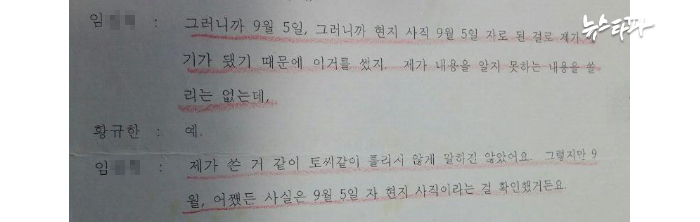 뉴스타파
임 : 그러니까 9월 5일, 그러니까 현지 사직 9월 5일 자로 된 걸로 제가
기가 됐기 때문에 이거를 썼지. 제가 내용을 알지 못하는 내용을 쓸
리는 없는데,
황규한 : 예.
임 : 제가 쓴 거 같이 토씨같이 틀리시 않게 말하긴 않았어요. 그렇지만 9
월, 어쨌든 사실은 9월 5일 자 현지 사직이라는 걸 확인했거든요.